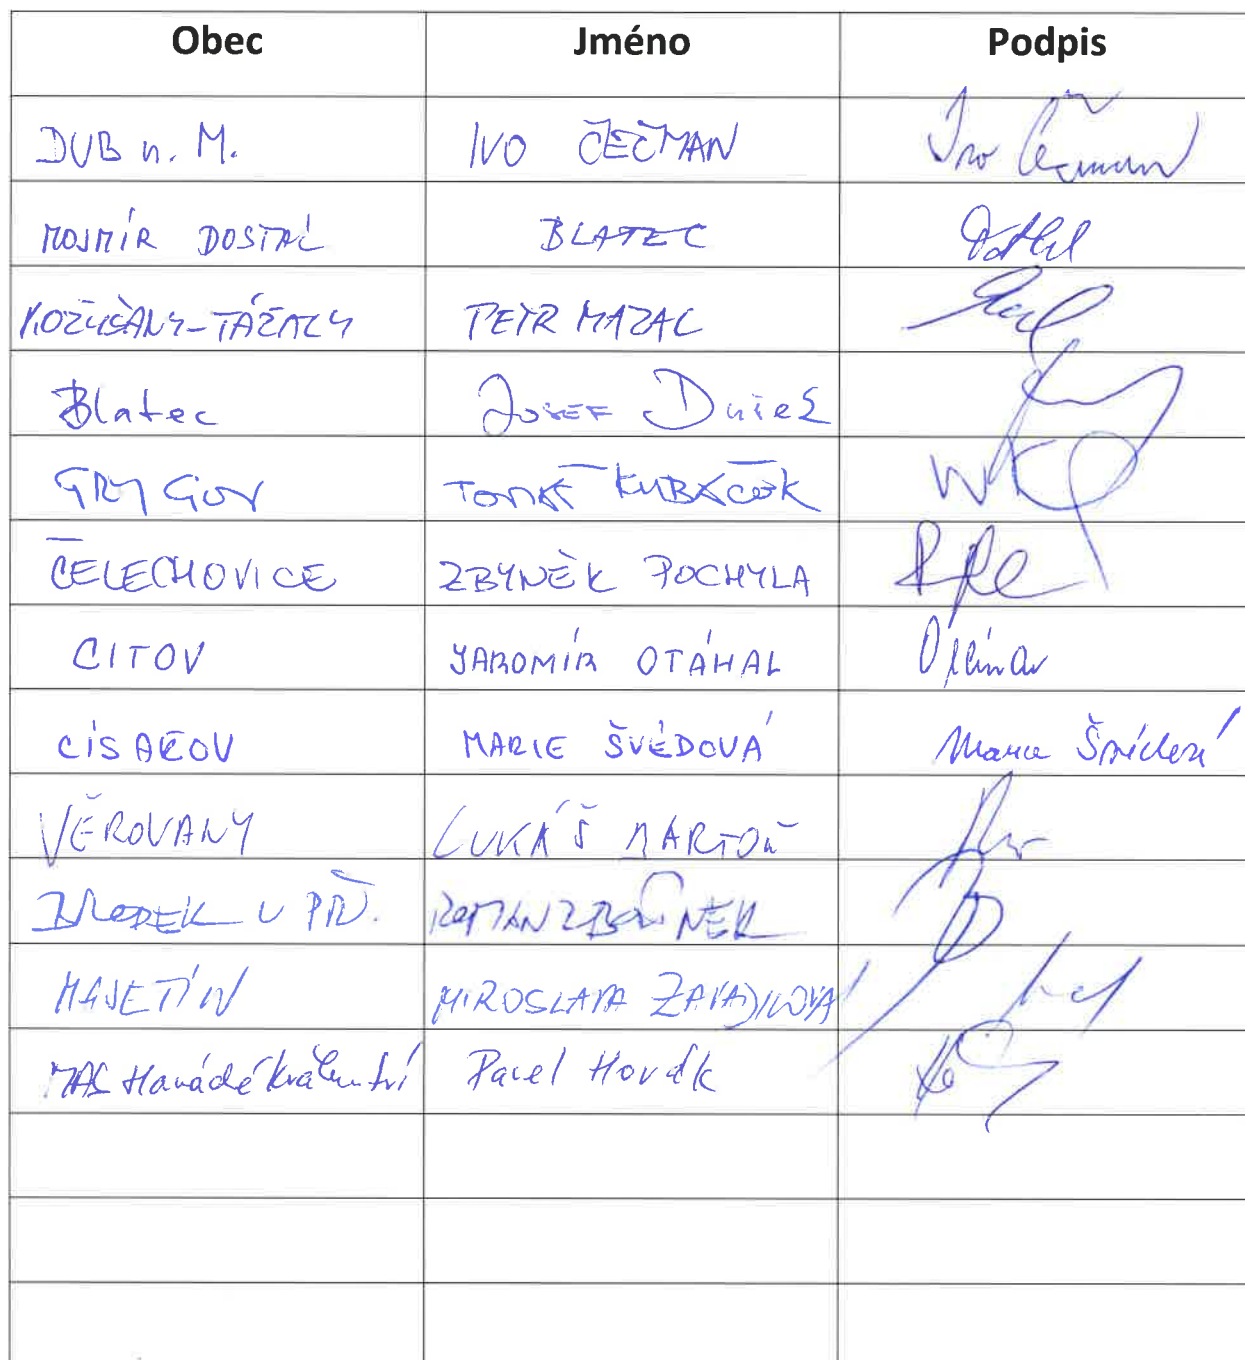 Obec Jméno Podpis
DUB n. M. IVO ČEČMAN Ivo Čečman
MOJMÍR DOSTÁL BLATEC
KOŽUŠANY-TÁŽALY PETR MAZAL
Blatec JOSEF
GRYGOV TOMÁŠ KUBÁČEK
ČELECHOVICE ZBYNĚK POCHYLA
CITOV JAROMÍR OTÁHAL
CÍSAŘOV MARIE ŠVÉDOVÁ Marie Švédová
VĚROVANY LUKÁŠ BARTOŇ
BRODEK U PŘ. ROMAN
MAJETÍN MIROSLAVA ZAVADILOVÁ
MAS Hanácké Království Pavel Horák